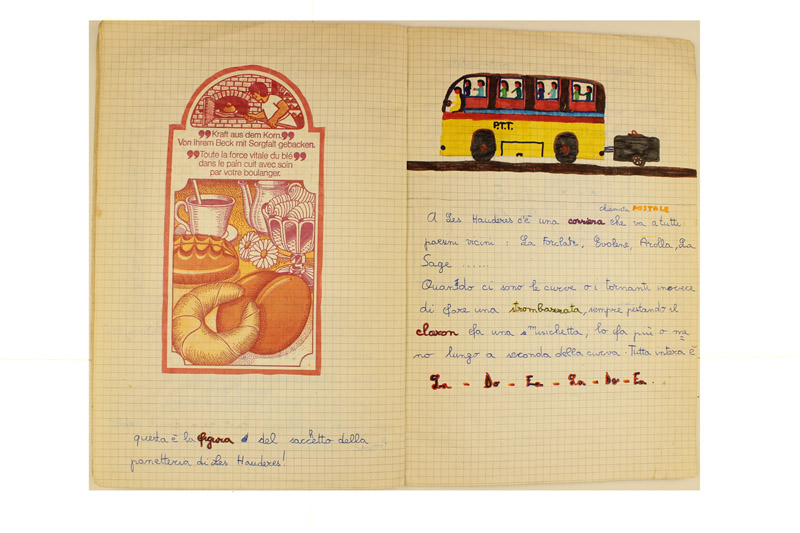 ❞Kraft aus dem Korn.❞
Von Ihrem Beck mit Sorgfalt gebacken.
❞Toute la force vitale du blé❞
dans le pain cuit avec soin
par votre boulanger.
questa è la figura del sacchetto della
panetteria di Les Hauderes!
P.T.T.
chiamata POSTALE
A Les Hauderes c'è una corriera che va a tutti
paesini vicini : La Forclatz, Evolene, Arolla, La
Sage ......
Quando ci sono le curve o i tornanti invece
di fare una strombazzata, sempre pestando il
claxon fa una musichetta, lo fa più o me
no lungo a seconda della curva. Tutta intera è
La - Do - Fa - La - Do - Fa .